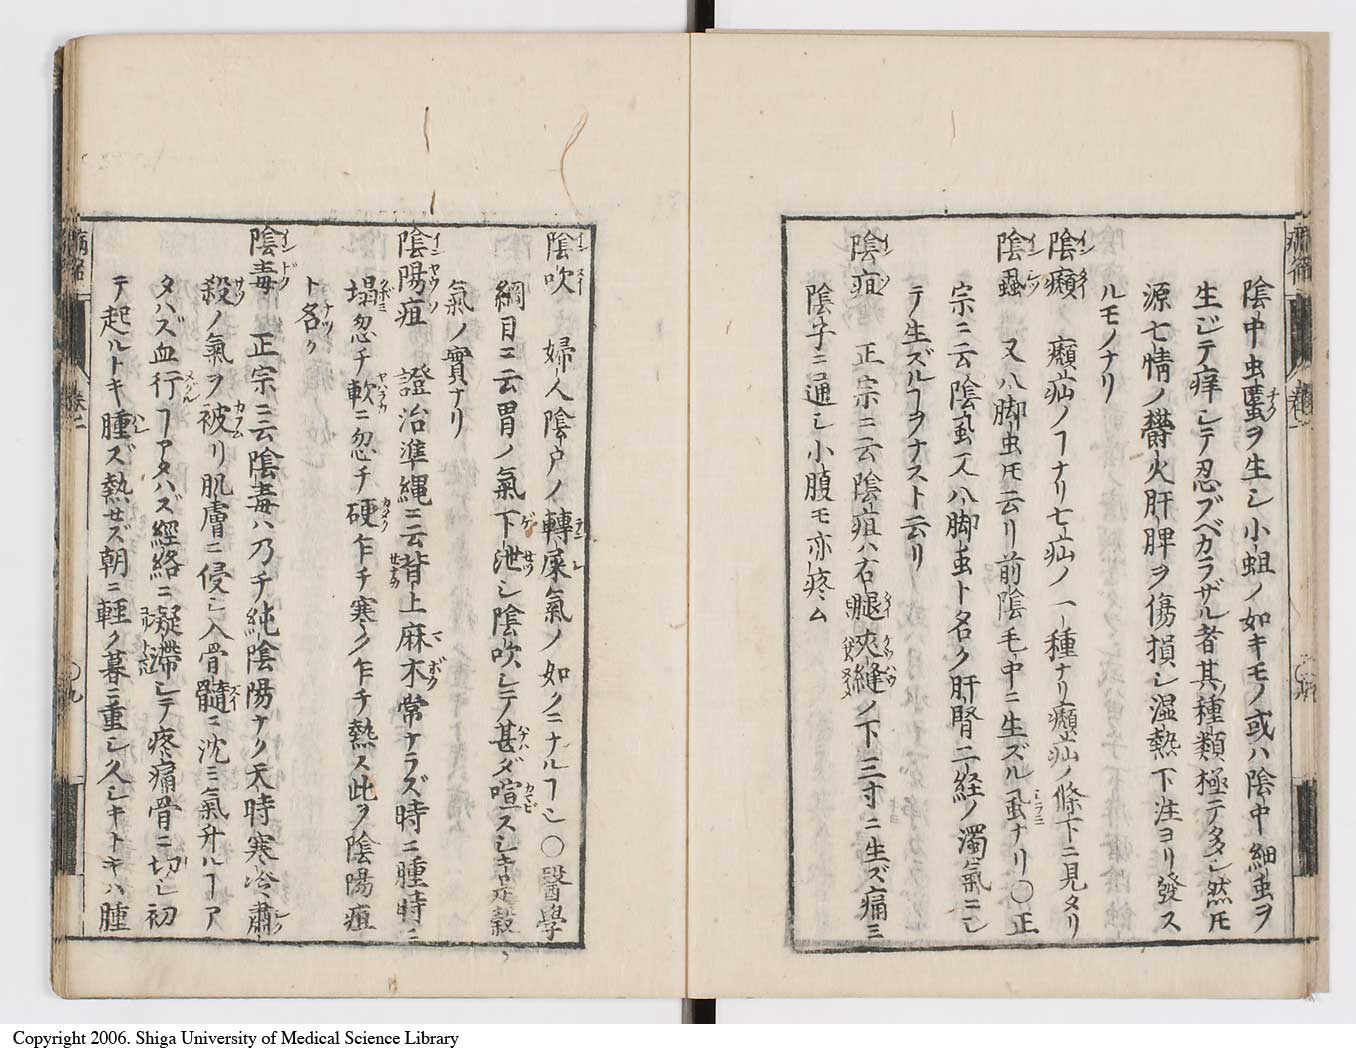 陰中虫䘌ヲ生シ小蛆ノ如キモノ或ハ陰中細虫ヲ
生ジテ痒シテ忍ブベカラザル者其種類極テ多シ然𪜈
源七情ノ欝火肝脾ヲ傷損シ濕熱下注ヨリ發ス
ルモノナリ
陰㿗 㿗疝ノヿナリ七疝ノ一種ナリ㿗疝ノ條下ニ見タリ
陰蝨 又八脚虫𪜈云リ前陰毛中ニ生ズル虱ナリ〇正
宗ニ云陰虱又八脚虫ト名ク肝腎二経ノ濁氣ニシ
テ生ズルヿヲナスト云リ
陰疽 正宗ニ云陰疽ハ右腿夾縫ノ下三寸ニ生ズ痛ミ
陰子ニ通シ小腹モ亦疼ム
陰吹 婦人陰戸ノ轉屎氣ノ如クニナルヿシ〇醫學
綱目ニ云胃ノ氣下泄シ陰吹シテ甚ダ喧スシキ是穀
氣ノ實ナリ
陰陽疽 證治準縄ニ云背上麻木常ナラズ時ニ腫時ニ
塌忽チ軟ニ忽チ硬乍チ寒ク乍チ熱ス此ヲ陰陽疽
ト名ク
陰毒 正宗ニ云陰毒ハ乃チ純陰陽ナノ天時寒冷肅
殺ノ氣ヲ被リ肌膚ニ侵シ入骨髓ニ沈ミ氣升ルヿア
タハズ血行ヿアタハズ經絡ニ凝滯シテ疼痛骨ニ切シ初
テ起ルトキ腫ズ熱せズ朝ニ輕ク暮ニ重シ久シキトキハ腫
巻二
〇九
Copyright 2006. Shiga University of Medical Science Library